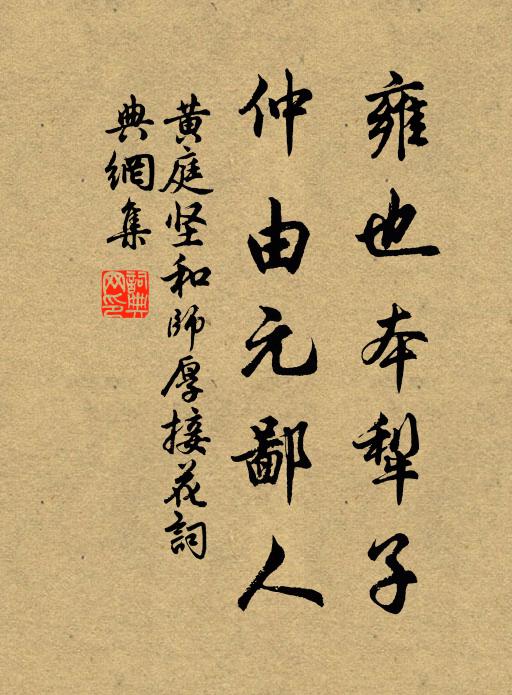 雍也本犁子
仲由元鄙人
黄庭坚和師厚接花詞
典網集
詞典網印